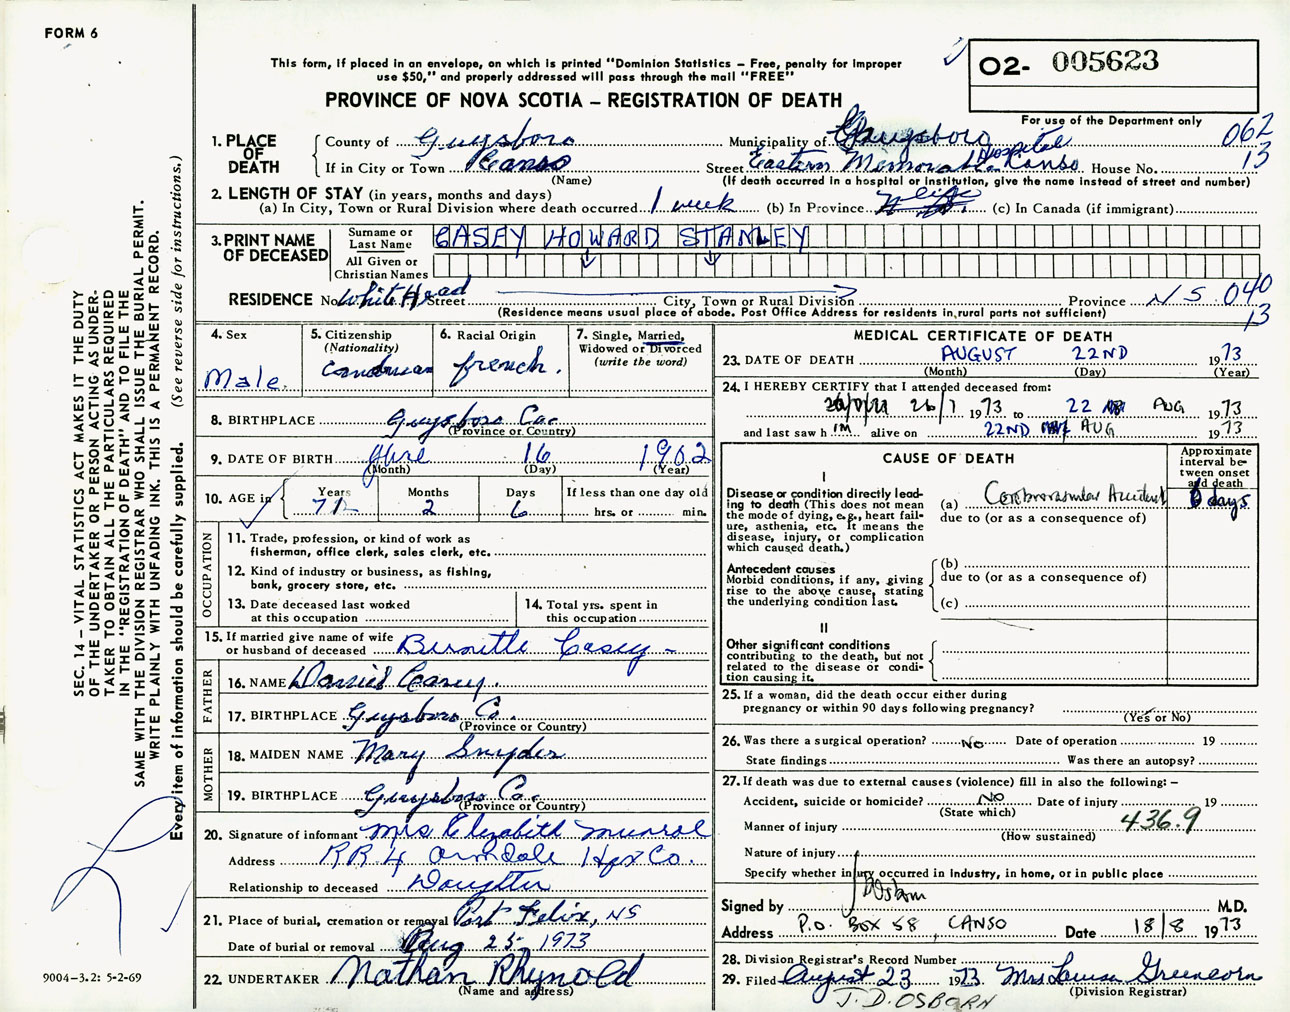 FORM 6
This form, if placed in an envelope, on which is printed "Dominion Statistics – Free, penalty for improper
use $50," and properly addressed will pass through the mail "FREE"
PROVINCE OF NOVA SCOTIA – REGISTRATION OF DEATH
O2- 005623
For use of the Department only
062
13
1. PLACE OF DEATH
County of Guysboro Municipality of Guysboro
If in City or Town Canso Street Eastern Memorial Hospital Canso House No.
(Name) (If death occurred in a hospital or institution, give the name instead of street and number)
2. LENGTH OF STAY (in years, months and days)
(a) In City, Town or Rural Division where death occurred 1 week (b) In Province life (c) In Canada (if immigrant)
3. PRINT NAME OF DECEASED
Surname or Last Name CASEY HOWARD STANLEY
All Given or Christian Names
RESIDENCE No. White Head Street City, Town or Rural Division Province NS 040
13
(Residence means usual place of abode. Post Office Address for residents in rural parts not sufficient)
4. Sex Male
5. Citizenship (Nationality) Canadian
6. Racial Origin french.
7. Single, Married, Widowed or Divorced (write the word)
8. BIRTHPLACE Guysboro Co.
(Province or Country)
9. DATE OF BIRTH June 16 1902
(Month) (Day) (Year)
10. AGE in Years 71 Months 2 Days 6 If less than one day old
hrs. or min.
OCCUPATION
11. Trade, profession, or kind of work as
fisherman, office clerk, sales clerk, etc.
12. Kind of industry or business, as fishing,
bank, grocery store, etc.
13. Date deceased last worked
at this occupation
14. Total yrs. spent in
this occupation
15. If married give name of wife
or husband of deceased Casey
FATHER
16. NAME Daniel Casey.
17. BIRTHPLACE Guysboro Co.
(Province or Country)
MOTHER
18. MAIDEN NAME Mary Snyder
19. BIRTHPLACE Guysboro Co.
(Province or Country)
20. Signature of informant Mrs Elizabeth Munroe
Address RR 4 Armdale Hfx Co.
Relationship to deceased Daughter
21. Place of burial, cremation or removal Port Felix, NS
Date of burial or removal Aug 25 1973
22. UNDERTAKER Nathan Rhynold
(Name and address)
MEDICAL CERTIFICATE OF DEATH
23. DATE OF DEATH AUGUST 22ND 1973
(Month) (Day) (Year)
24. I HEREBY CERTIFY that I attended deceased from:
26/7 1973 to 22 AUG 1973
and last saw h im alive on 22ND AUG 1973
CAUSE OF DEATH
Approximate interval between onset and death
I
Disease or condition directly lead-
ing to death (This does not
mean the mode of dying, e.g., heart fail-
ure, asthenia, etc. It means the
disease, injury, or complication
which caused death.)
(a) Cerebrovascular Accident 6 days
due to (or as a consequence of)
Antecedent causes
Morbid conditions, if any, giving
rise to the above cause, stating
the underlying condition last.
(b)
due to (or as a consequence of)
(c)
II
Other significant conditions
contributing to the death, but not
related to the disease or condi-
tion causing it.
25. If a woman, did the death occur either during
pregnancy or within 90 days following pregnancy?
(Yes or No)
26. Was there a surgical operation? No Date of operation 19
State findings Was there an autopsy?
27. If death was due to external causes (violence) fill in also the following: –
Accident, suicide or homicide? NO Date of injury 19
(State which)
Manner of injury 436.9
(How sustained)
Nature of injury
Specify whether injury occurred in industry, in home, or in public place
Signed by JDOsborn M.D.
Address P.O. BOX 58, CANSO Date 18/8 1973
28. Division Registrar's Record Number
29. Filed August 23 1973 Mrs Louisa Greencorn
(Division Registrar)
J. D. OSBORN
SEC. 14 – VITAL STATISTICS ACT MAKES IT THE DUTY
OF THE UNDERTAKER OR PERSON ACTING AS UNDER-
TAKER TO OBTAIN ALL THE PARTICULARS REQUIRED
IN THE "REGISTRATION OF DEATH" AND TO FILE THE
SAME WITH THE DIVISION REGISTRAR WHO SHALL ISSUE THE BURIAL PERMIT.
WRITE PLAINLY WITH UNFADING INK. THIS IS A PERMANENT RECORD.
Every item of information should be carefully supplied. (See reverse side for instructions.)
9004–3.2: 5-2-69